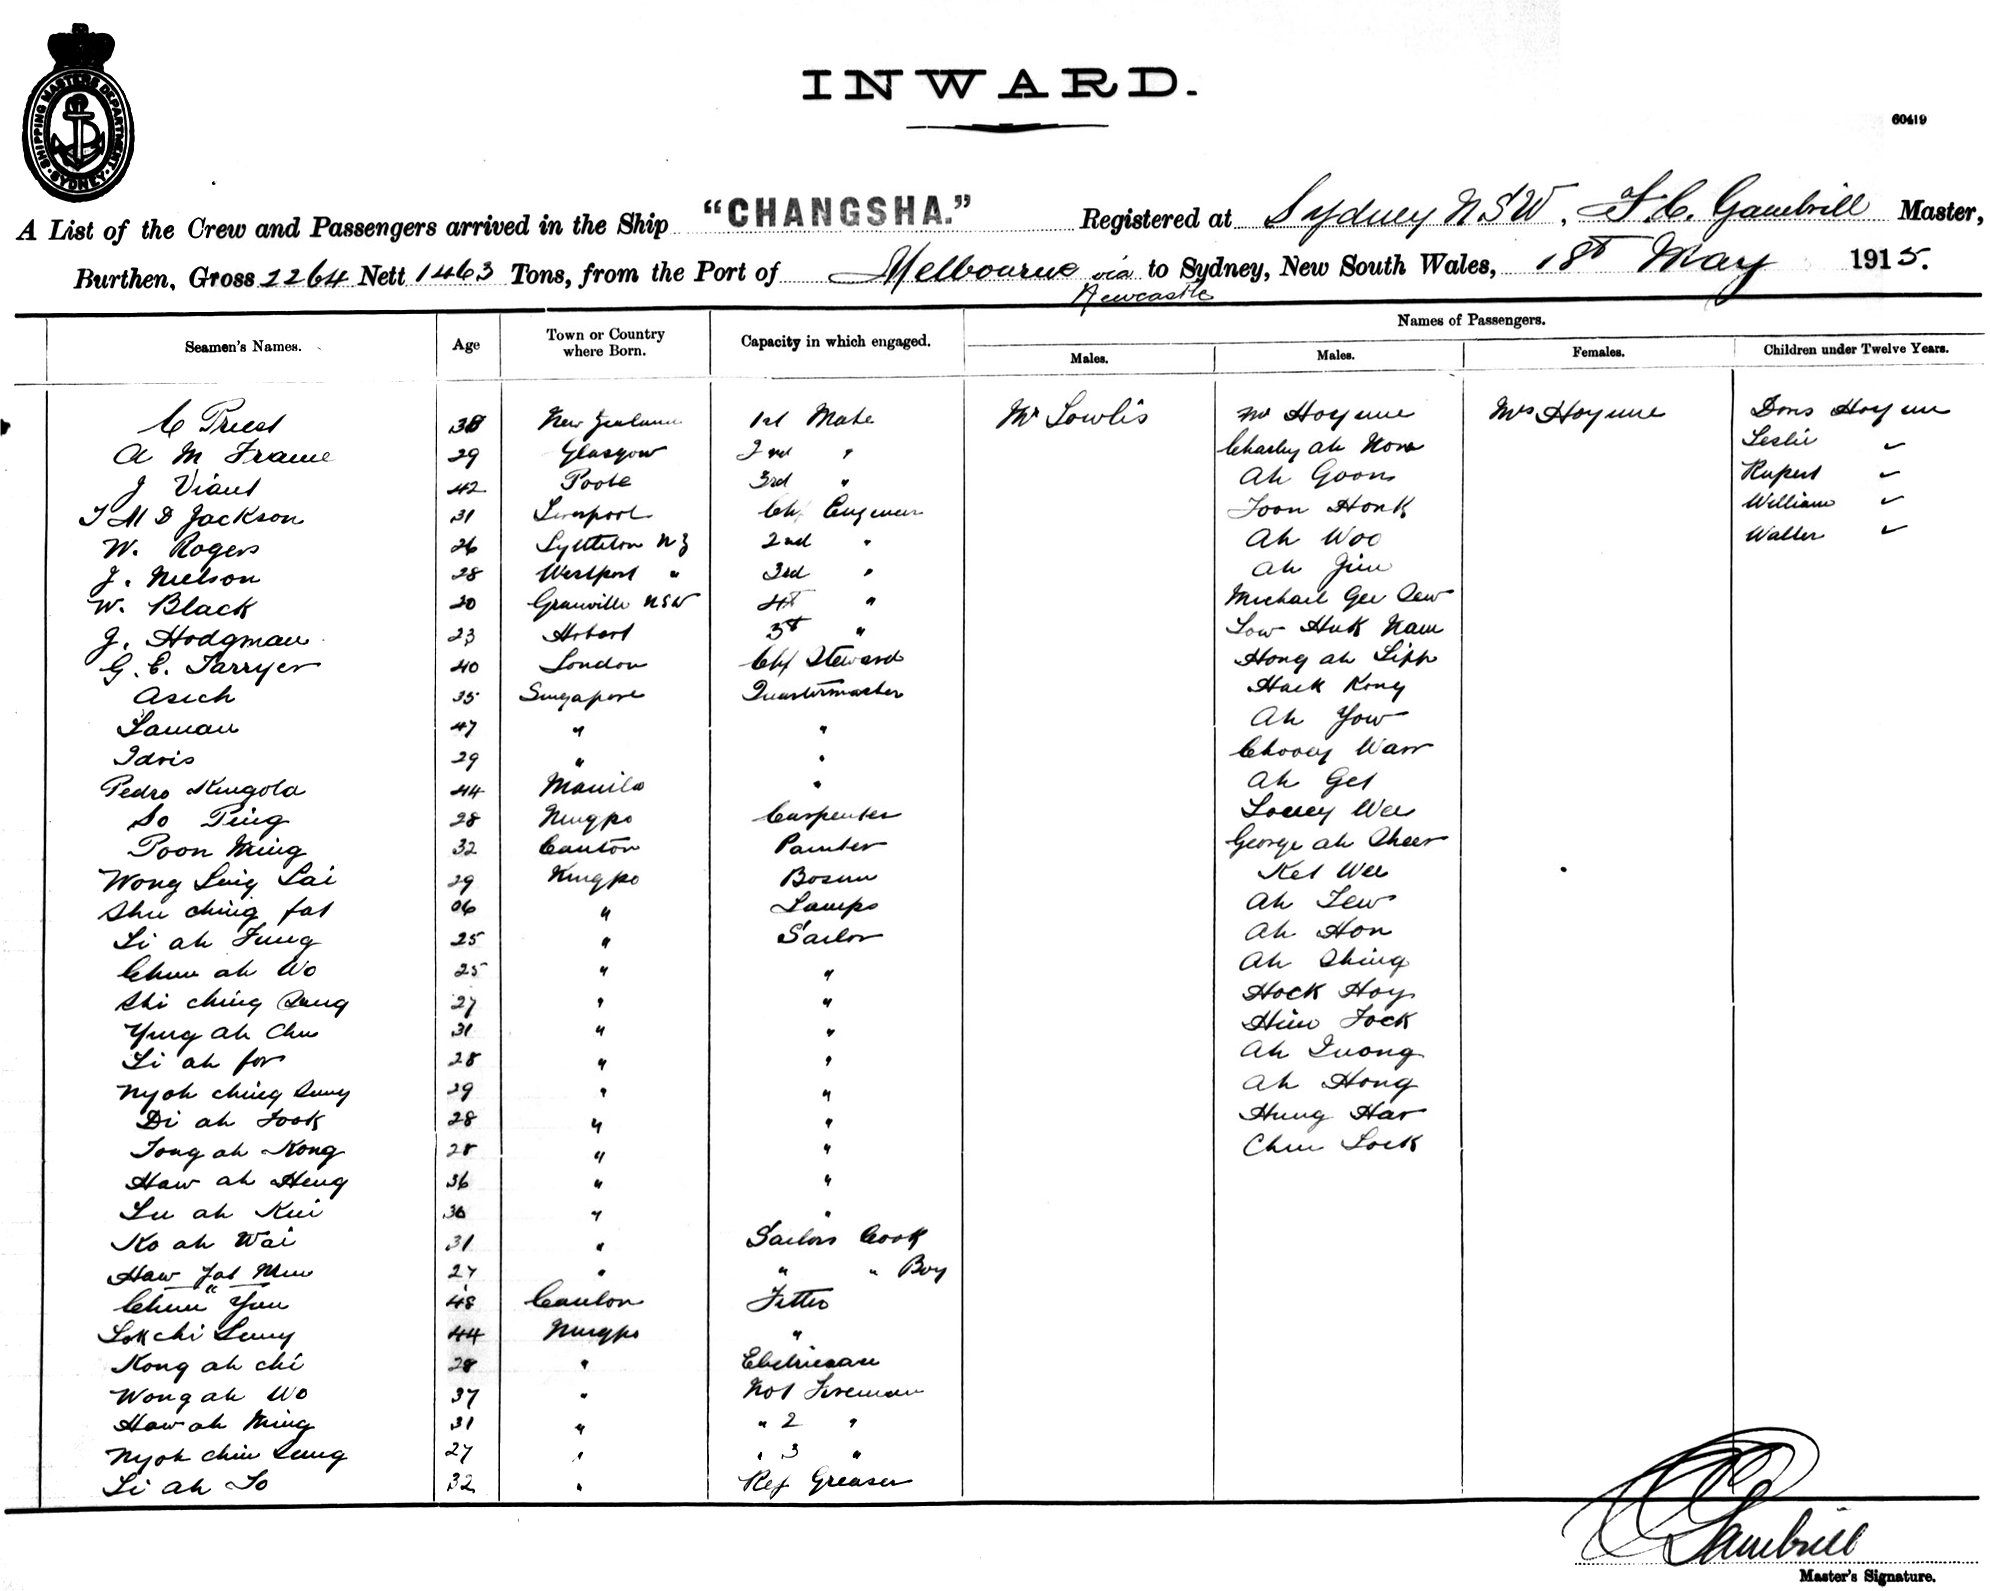 SHIPPING MASTERS DEPARTMENT · SYDNEY ·
INWARD.
60419
A List of the Crew and Passengers arrived in the Ship "CHANGSHA." Registered at Sydney NSW, Gambrill Master,
Burthen, Gross 2264 Nett 1463 Tons, from the Port of Melbourne via Newcastle to Sydney, New South Wales, 18th May 1915.
Names of Passengers.
Seamen's Names. Age Town or Country where Born. Capacity in which engaged. Males. Males. Females. Children under Twelve Years.
C Priest 38 New Zealand 1st Mate Mr Lowlis Mr Hoyune Mrs Hoyune Doris Hoyune
A M Frame 29 Glasgow 2nd " Charley ah Leslie ✓
J Viant 42 Poole 3rd " Ah Goon Rupert ✓
J M D Jackson 31 Liverpool Chf Engineer Toon Honk William ✓
W. Rogers 26 Lyttleton NZ 2nd " Ah Woo Walter ✓
J. Nielson 28 Westport " 3rd " Ah Jim
W. Black 20 Granville NSW 4th " Michael Gee
J. Hodgman 23 Hobart 5th " Low Huk Nam
G. E. Tarryer 40 London Chf Steward Hong ah Lipp
Asich 35 Singapore Quartermaster Hack Kong
Laman 47 " " Ah Yow
Idris 29 " " Choovey Warr
Pedro 44 Manila " Ah Get
So Ping 28 Ningpo Carpenter Louey Wee
Poon Ming 32 Canton Painter George ah Sheer
Wong Ling Lai 29 Ningpo Bosun Ket Wee
Shu ching fat 06 " Lamps Ah Lew
Li ah Fung 25 " Sailor Ah Hon
Chun ah Wo 25 " " Ah Shing
Shi ching Sung 27 " " Hock Hoy
Yung ah Chu 31 " " Him Fock
Li ah for 28 " " Ah Quong
Nyoh ching Sung 29 " " Ah Hong
Di ah Fook 28 " " Hung Har
Tong ah Kong 28 " " Chu Lock
Haw ah Heng 36 " "
Lu ah Kui 36 " "
Ko ah Wai 31 " Sailors Cook
Haw Fat Mun 27 " " " Boy
Chun Yun 48 Canton Fitter
Lok chi Sung 44 Ningpo "
Kong ah chi 28 " Electrician
Wong ah Wo 37 " No1 Fireman
Haw ah Ming 31 " " 2 "
Nyoh chin Sung 27 " " 3 "
Li ah So 32 " Ref Greaser
Gambrill
Master's Signature.